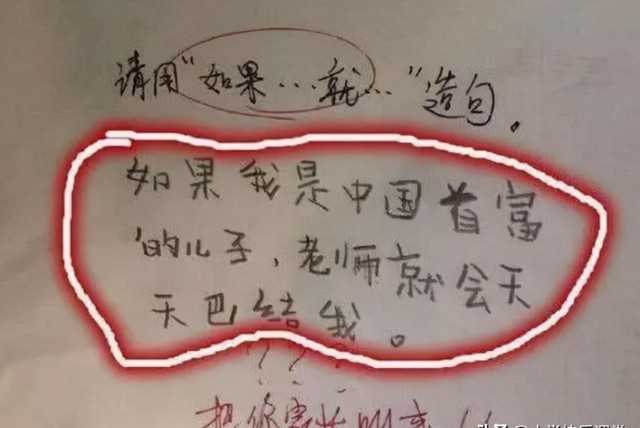 请用“如果…就…”造句。
如果我是中国首富
的儿子,老师就会天
天巴结我。
???
把你家长叫来!!